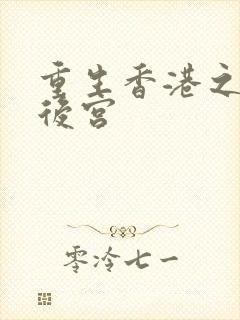 重生香港之
後宮
零泠七一